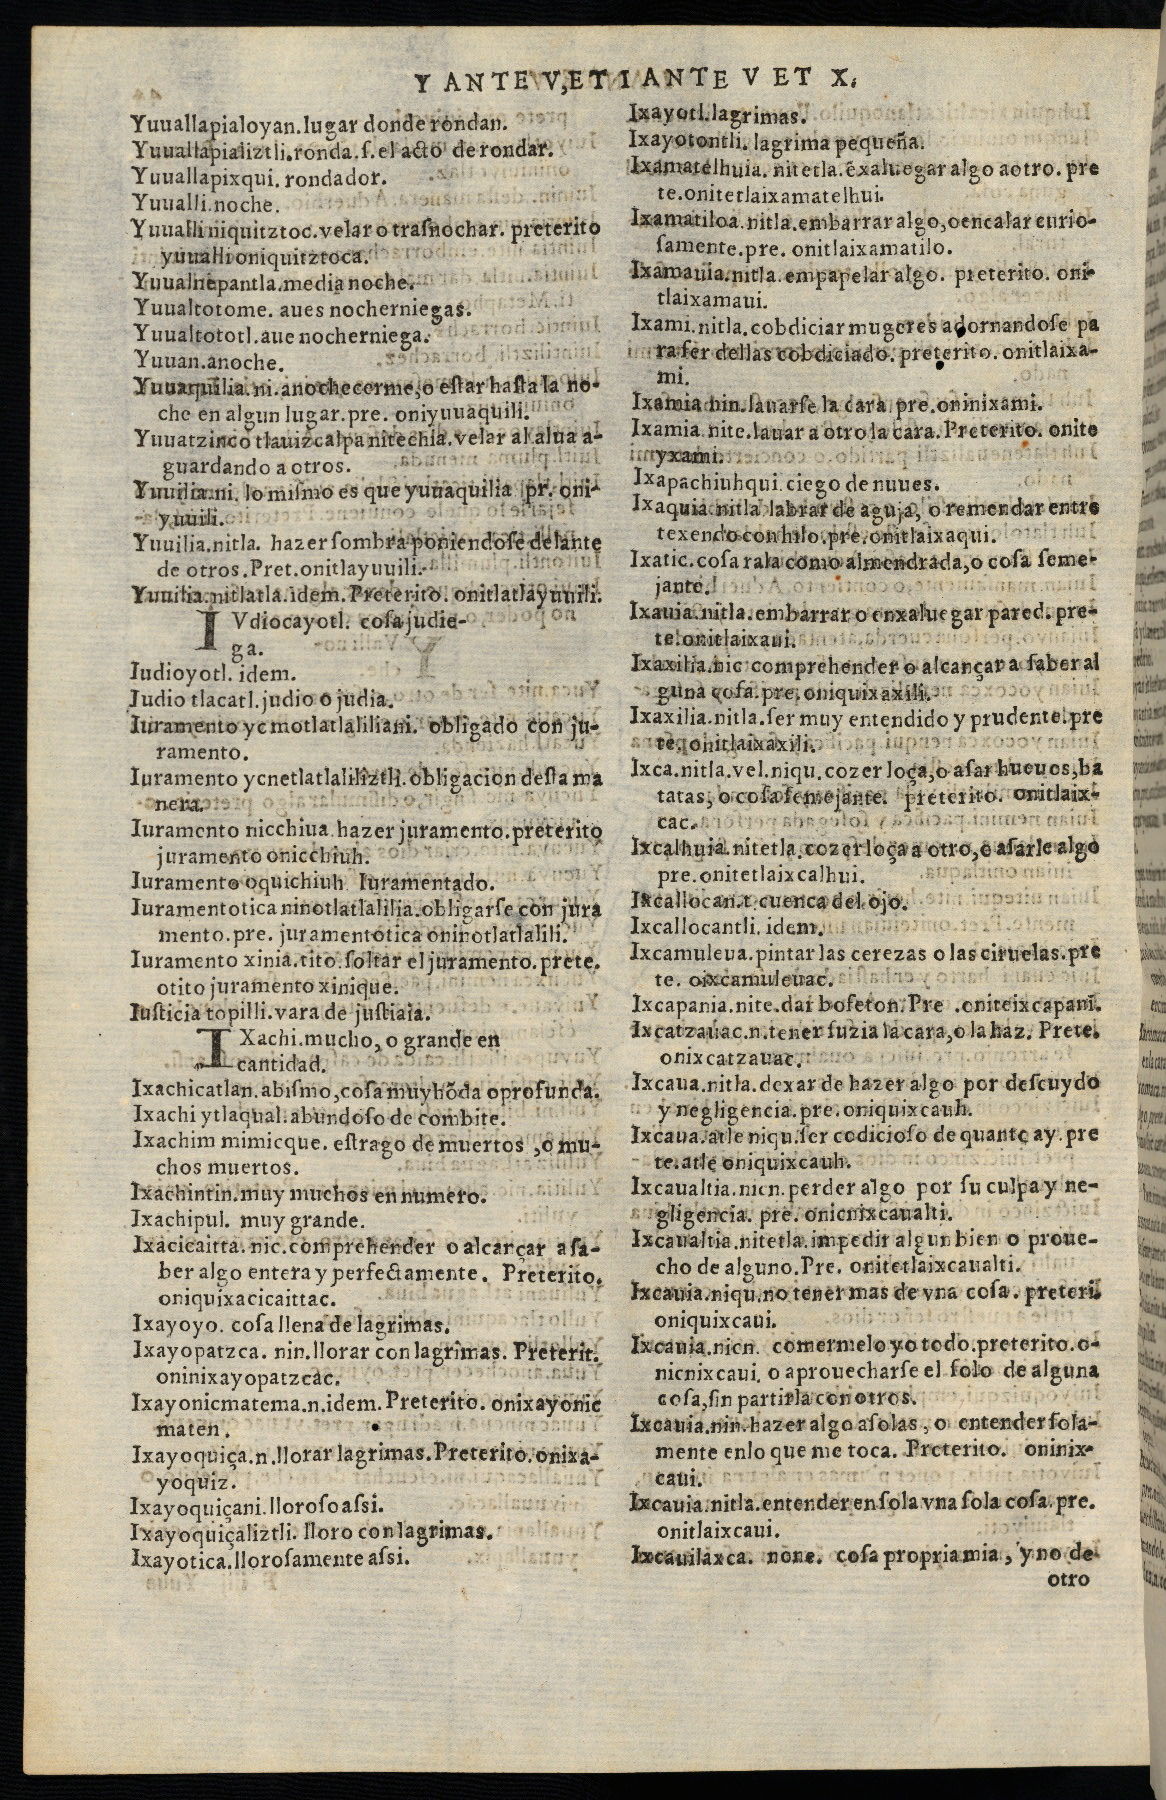 Y ANTE V, ET I ANTE V ET X.
Yuuallapialoyan. lugar donde rondan.
Yuuallapializtli. ronda. ſ. el acto de rondar.
Yuuallapixqui. rondador.
Yuualli. noche.
Yuualli niquitztoc. velar o traſnochar. preterito
yuualli oniquitztoca.
Yuualnepantla. media noche.
Yuualtotome. aues nocherniegas.
Yuualtototl. aue nocherniega.
Yuuan. anoche.
Yuuaquilia. ni. anochecerme, o eſtar haſta la no-
che en algun lugar. pre. oniyuuaquili.
Yuuatzinco tlauizcalpa nitechia. velar al alua a-
guardando a otros.
Yuuilia. ni. lo miſmo es que yuuaquilia pr. oni-
yuuili.
Yuuilia. nitla. hazer ſombra poniendoſe delante
de otros. Pret. onitlayuuili.
Yuuilia. nitlatla. idem. Preterito. onitlatlayuuili.
IVdiocayotl. coſa judie-
ga.
Iudioyotl. idem.
Judio tlacatl. judio o judia.
Iuramento yc motlatlaliliani. obligado con ju-
ramento.
Iuramento yc netlatlaliliztli. obligacion deſta ma
nera.
Iuramento nicchiua. hazer juramento. preterito
juramento onicchiuh.
Iuramento oquichiuh. Iuramentado.
Iuramentotica ninotlatlalilia. obligarſe con jura
mento. pre. juramentotica oninotlatlalili.
Iuramento xinia. tito. ſoltar el juramento. prete.
otito juramento xinique.
Iuſticia topilli. vara de juſtiaia.
IXachi. mucho, o grande en
cantidad.
Ixachicatlan. abiſmo, coſa muy hõda o profunda.
Ixachi ytlaqual. abundoſo de combite.
Ixachim mimicque. eſtrago de muertos, o mu-
chos muertos.
Ixachintin. muy muchos en numero.
Ixachipul. muy grande.
Ixacicaitta. nic. comprehender o alcançar a ſa-
ber algo entera y perfectamente. Preterito.
oniquixacicaittac.
Ixayoyo. coſa llena de lagrimas.
Ixayopatzca. nin. llorar con lagrimas. Preterit.
oninixayopatzcac.
Ixayonicmatema. n. idem. Preterito. onixayonic
maten.
Ixayoquiça. n. llorar lagrimas. Preterito. onixa-
yoquiz.
Ixayoquiçani. lloroſo aſſi.
Ixayoquiçaliztli. lloro con lagrimas.
Ixayotica. lloroſamente aſſi.
Ixayotl. lagrimas.
Ixayotontli. lagrima pequeña.
Ixamatelhuia. nitetla. ẽxaluegar algo a otro. pre
te. onitetlaixamatelhui.
Ixamatiloa. nitla. embarrar algo, o encalar curio-
ſamente. pre. onitlaixamatilo.
Ixamauia. nitla. empapelar algo. preterito. oni-
tlaixamaui.
Ixami. nitla. cobdiciar mugeres adornandoſe pa
ra ſer dellas cobdiciado. preterito. onitlaixa-
mi.
Ixamia nin. lauarſe la cara. pre. oninixami.
Ixamia. nite. lauar a otro la cara. Preterito. onite
yxami.
Ixapachiuhqui. ciego de nuues.
Ixaquia. nitla. labrar de aguja, o remendar entre
texendo con hilo. pre. onitlaixaqui.
Ixatic. coſa rala como almendrada, o coſa ſeme-
jante.
Ixauia. nitla. embarrar o enxaluegar pared. pre-
te. onitlaixaui.
Ixaxilia. nic. comprehender o alcançar a ſaber al
guna coſa. pre. oniquixaxili.
Ixaxilia. nitla. ſer muy entendido y prudente. pre
te. onitlaixaxili.
Ixca. nitla. vel. niqu. cozer loça, o aſar hueuos, ba
tatas, o coſa ſemejante. preterito. onitlaix-
cac.
Ixcalhuia. nitetla. cozer loça a otro, o aſarle algo
pre. onitetlaixcalhui.
Ixcallocan. t. cuenca del ojo.
Ixcallocantli. idem.
Ixcamuleua. pintar las cerezas o las ciruelas. pre
te. oixcamuleuac.
Ixcapania. nite. dar bofeton. Pre. oniteixcapani.
Ixcatzauac. n. tener ſuzia la cara, o la haz. Prete.
onixcatzauac.
Ixcaua. nitla. dexar de hazer algo por deſcuydo
y negligencia. pre. oniquixcauh.
Ixcaua. atle niqu. ſer codicioſo de quanto ay. pre
te. atle oniquixcauh.
Ixcaualtia. nicn. perder algo por ſu culpa y ne-
gligencia. pre. onicnixcaualti.
Ixcaualtia. nitetla. impedir algun bien o proue-
cho de alguno. Pre. onitetlaixcaualti.
Ixcauia. niqu. no tener mas de vna coſa. preteri.
oniquixcaui.
Ixcauia. nicn. comermelo yo todo. preterito. o-
nicnixcaui. o aprouecharſe el ſolo de alguna
coſa, ſin partirla con otros.
Ixcauia. nin. hazer algo a ſolas, o entender ſola-
mente en lo que me toca. Preterito. oninix-
caui.
Ixcauia. nitla. entender en ſola vna ſola coſa. pre.
onitlaixcaui.
Ixcauilaxca. none. coſa propria mia, y no de
otro